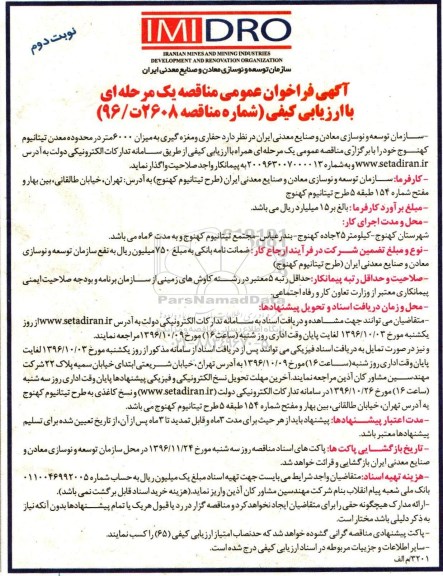 نوبت دوم
IMIDRO
IRANIAN MINES AND MINING INDUSTRIES
DEVELOPMENT AND RENOVATION ORGANIZATION
سازمان توسعه و نوسازی معادن و صنایع معدنی ایران
آگهی فراخوان عمومی مناقصه یک مرحله ای
با ارزیابی کیفی (شماره مناقصه ۲۶۰۸ت/۹۶)
-سازمان توسعه و نوسازی معادن و صنایع معدنی ایران در نظر دارد حفاری و مغزه گیری به میزان ۶۰۰۰متر در محدوده معدن تیتانیوم
کهنوج خود را با برگزاری مناقصه عمومی یک مرحله ای همراه با ارزیابی کیفی از طریق سامانه تدارکات الکترونیکی دولت به آدرس
www.setadiran.ir و به شماره ۲۰۰۹۶۳۰۰۷۰۰۰۰۱۳ به پیمانکار واجد صلاحیت واگذار نماید.
-کارفرما: سازمان توسعه و نوسازی معادن و صنایع معدنی ایران (طرح تیتانیوم کهنوج) به آدرس: تهران، خیابان طالقانی، بین بهار و
مفتح شماره ۱۵۴ طبقه ۵ طرح تیتانیوم کهنوج
-مبلغ برآورد کارفرما: بالغ بر ۱۵ میلیارد ریال می باشد.
-محل و مدت اجرای کار:
شهرستان کهنوج-کیلومتر ۲۵جاده کهنوج-بندرعباس-مجتمع تیتانیوم کهنوج و به مدت ۶ماه می باشد.
-نوع و مبلغ تضمین شرکت در فرآیند ارجاع کار: ضمانت نامه بانکی به مبلغ ۷۵۰میلیون ریال به نفع سازمان توسعه و نوسازی
معادن و صنایع معدنی ایران (طرح تیتانیوم کهنوج)
-صلاحیت و حداقل رتبه پیمانکار: حداقل رتبه ۵معتبر در رشته کاوش های زمینی از سازمان برنامه و بودجه صلاحیت ایمنی
پیمانکاری معتبر از وزارت تعاون کار و رفاه اجتماعی
-محل و زمان دریافت اسناد و تحویل پیشنهادها:
-متقاضیان می توانند جهت مشاهده و دریافت اسناد به سامانه تدارکات الکترونیکی دولت به آدرس www.setadiran.ir از روز
یکشنبه مورخ ۱۳۹۶/۱۰/۰۳ لغایت پایان وقت اداری روز شنبه (ساعت ۱۶) مورخ ۱۳۹۶/۱۰/۰۹ مراجعه نمایند.
و نیز در صورت تمایل به دریافت اسناد فیزیکی می توانند پس از دریافت اسناد از سامانه مذکور از روز یکشنبه مورخ ۱۳۹۶/۱۰/۰۳ لغایت
پایان وقت اداری روز شنبه (ساعت ۱۶) مورخ ۱۳۹۶/۱۰/۰۹ به آدرس تهران، خیابان شریعتی ابتدای خیابان سمیه پلاک ۲۲ شرکت
مهندسین مشاور کان آذین مراجعه نمایند. آخرین مهلت تحویل نسخ الکترونیکی و فیزیکی پیشنهادها پایان وقت اداری روز سه شنبه
(ساعت ۱۶) مورخ ۱۳۹۶/۱۰/۲۶ در سامانه تدارکات الکترونیکی دولت (www.setadiran.ir) و نسخ کاغذی به طرح تیتانیوم کهنوج
به آدرس تهران، خیابان طالقانی، بین بهار و مفتح شماره ۱۵۴ طبقه ۵ طرح تیتانیوم کهنوج می باشد.
-مدت اعتبار پیشنهادها: پیشنهاد باید از هر حیث برای مدت ۳ماه و قابل تمدید تا ۳ماه پس از آن، از تاریخ تعیین شده برای تسلیم
پیشنهادها معتبر باشد.
-تاریخ بازگشایی پاکت ها: پاکت های اسناد مناقصه روز سه شنبه مورخ ۱۳۹۶/۱۱/۲۴ در محل سازمان توسعه و نوسازی معادن و
صنایع معدنی ایران بازگشایی و قرائت خواهد شد.
-هزینه تهیه اسناد: متقاضیان واجد شرایط می بایست جهت تهیه اسناد مبلغ یک میلیون ریال به حساب شماره ۰۱۱۰۰۴۶۹۹۲۰۰۵
بانک ملی شعبه پیام انقلاب بنام شرکت مهندسین مشاور کان آذین واریز نمایند.(هزینه خرید اسناد قابل برگشت نمی باشد).
-ارائه مدارک هیچگونه حقی را برای متقاضیان ایجاد نخواهد کرد و مناقصه گزار در رد یا قبول هر یک یا تمام پیشنهادها بدون آنکه نیاز
به ذکر دلیلی باشد مختار است.
-پاکت پیشنهادی مناقصه گرانی گشوده خواهد شد که حدنصاب امتیاز ارزیابی کیفی (۶۵) را کسب نمایند.
-سایر اطلاعات و جزییات مربوطه در اسناد ارزیابی کیفی درج شده است.
۳۲۰۱/م الف